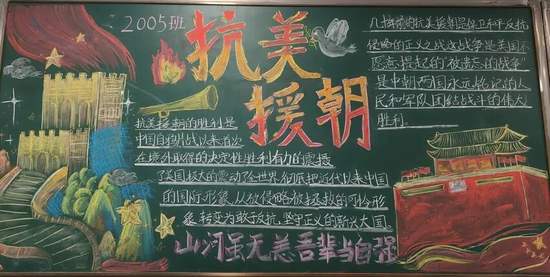 2005班
抗美
援朝
几十年前的抗美援朝是保卫和平反抗
侵略的正义之战这战争是美国不
愿意提起的"被遗忘的战争"
是中朝两国永远铭记的人
民和军队团结战斗的伟大
胜利。
抗美援朝的胜利是
中国自鸦片战以来首次
在境外取得的决定性胜利有力的震撼
了美国极大的震动了全世界彻底把近代以来中国
的国际形象从被侵略被拯救的可怜形
象,转变为敢于反抗,坚守正义的新兴大国
山河虽无恙吾辈当自强